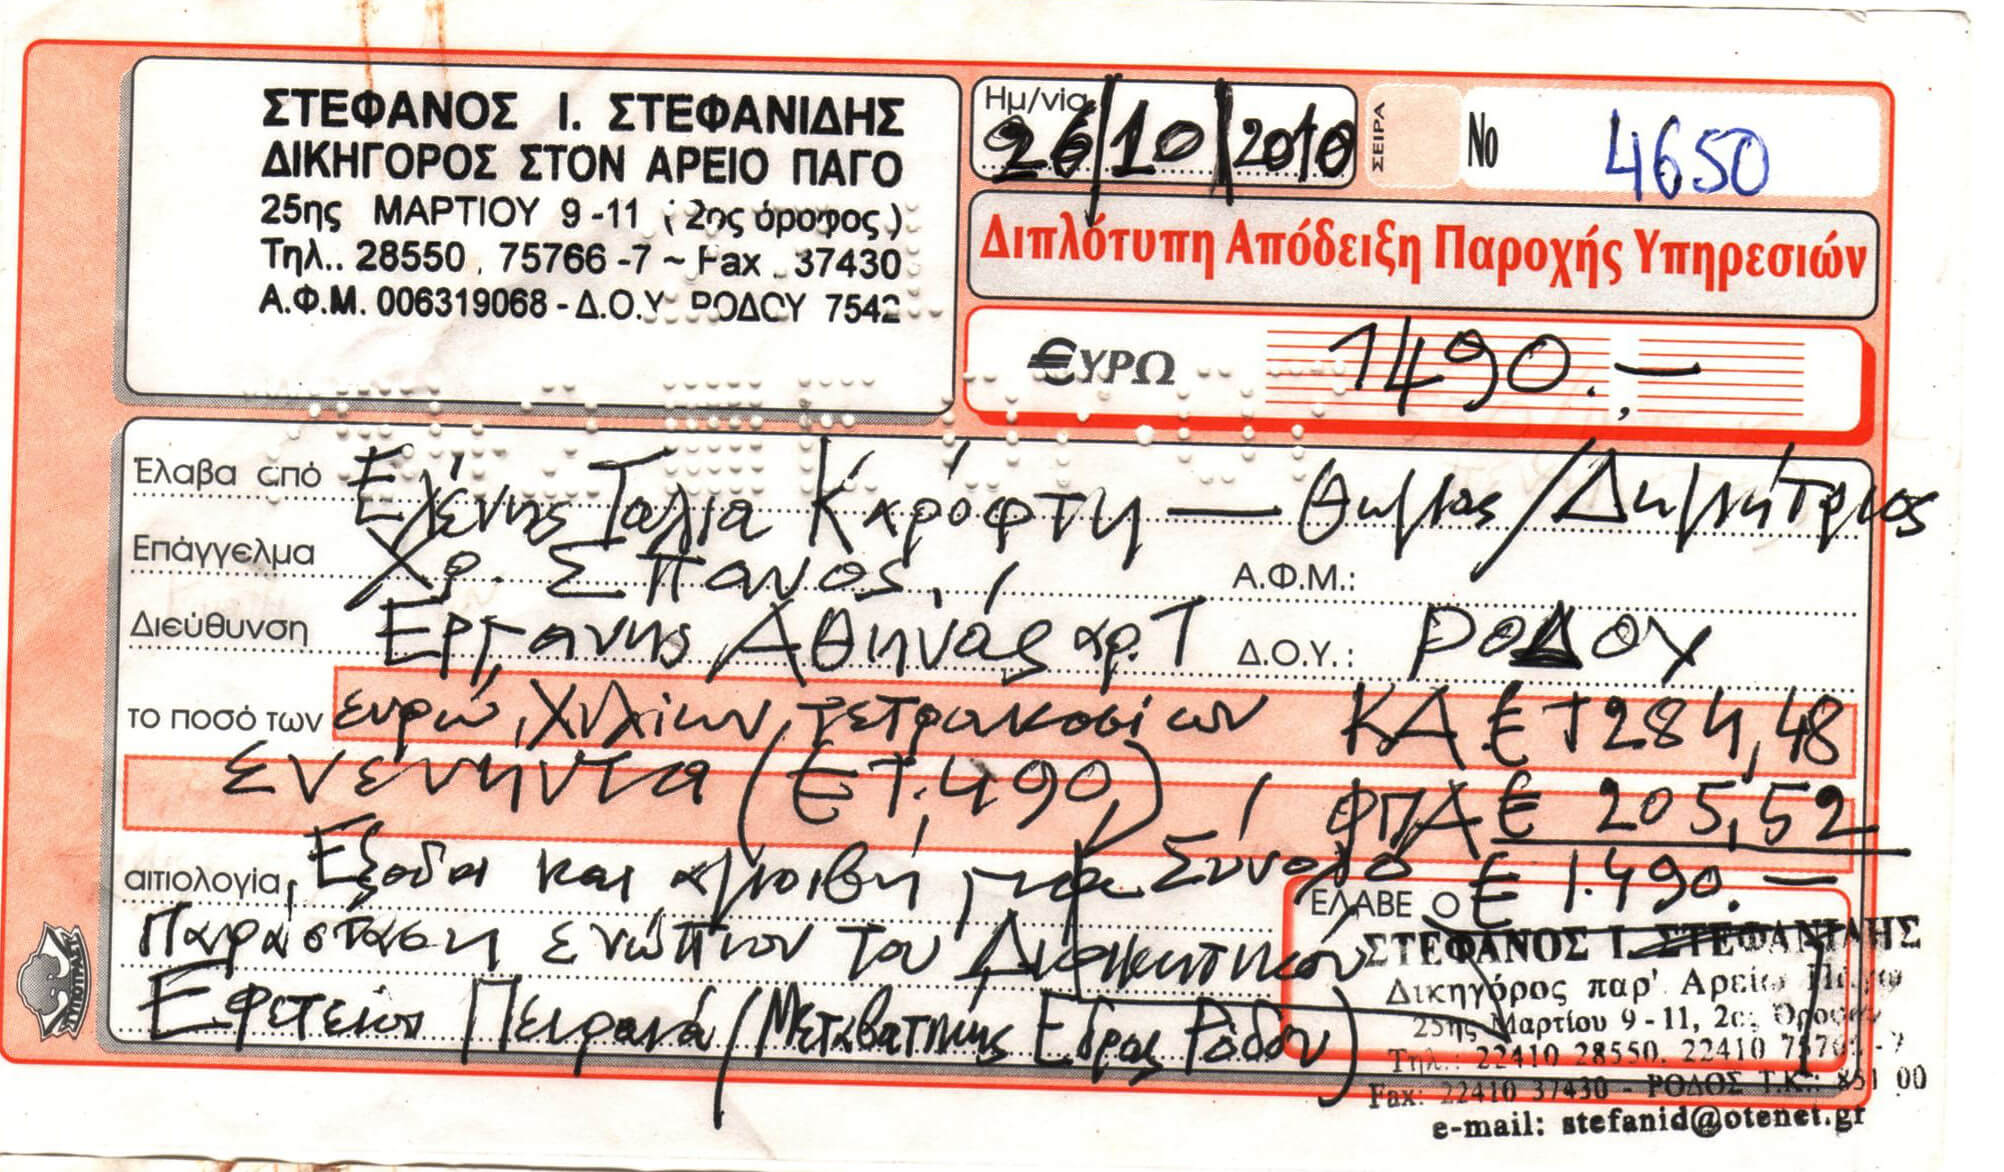 ΣΤΕΦΑΝΟΣ Ι. ΣΤΕΦΑΝΙΔΗΣ
ΔΙΚΗΓΟΡΟΣ ΣΤΟΝ ΑΡΕΙΟ ΠΑΓΟ
25ης ΜΑΡΤΙΟΥ 9 -11 ( 2ος όροφος )
Τηλ.. 28550 , 75766 -7 ~ Fax . 37430
Α.Φ.Μ. 006319068 - Δ.Ο.Υ. ΡΟΔΟΥ 7542
Ημ/νία 26/10/2010
ΣΕΙΡΑ
Νο 4650
Διπλότυπη Απόδειξη Παροχής Υπηρεσιών
€ΥΡΩ 1490.-
Έλαβα από Ελένης Ταλια Κ - Θωμας/Δημήτριος
Επάγγελμα Χρ. Σπανος, Α.Φ.Μ.:
Διεύθυνση Εργανης Αθηνάς αρ. 1 Δ.Ο.Υ.: ΡΟΔΟΥ
το ποσό των ευρώ, Χιλίων τετρακοσίων ΚΑ € 1284,48
ενενηντα (€ 1.490,) ΦΠΑ € 205,52
αιτιολογία, Εξοδα και αμοιβή για Σύνολο € 1.490.-
Παράσταση ενώπιον του Διοικητικού
Εφετείου Πειραιά (Μεταβατικής Εδρας Ρόδου)
ΕΛΑΒΕ Ο
ΣΤΕΦΑΝΟΣ Ι. ΣΤΕΦΑΝΙΔΗΣ
Δικηγόρος παρ' Αρείω Πάγω
25ης Μαρτίου 9 - 11, 2ος Όροφος
Τηλ.: 22410 28550, 22410 75766 - 7
Fax: 22410 37430 - ΡΟΔΟΣ Τ.Κ.: 851 00
e-mail: stefanid@otenet.gr